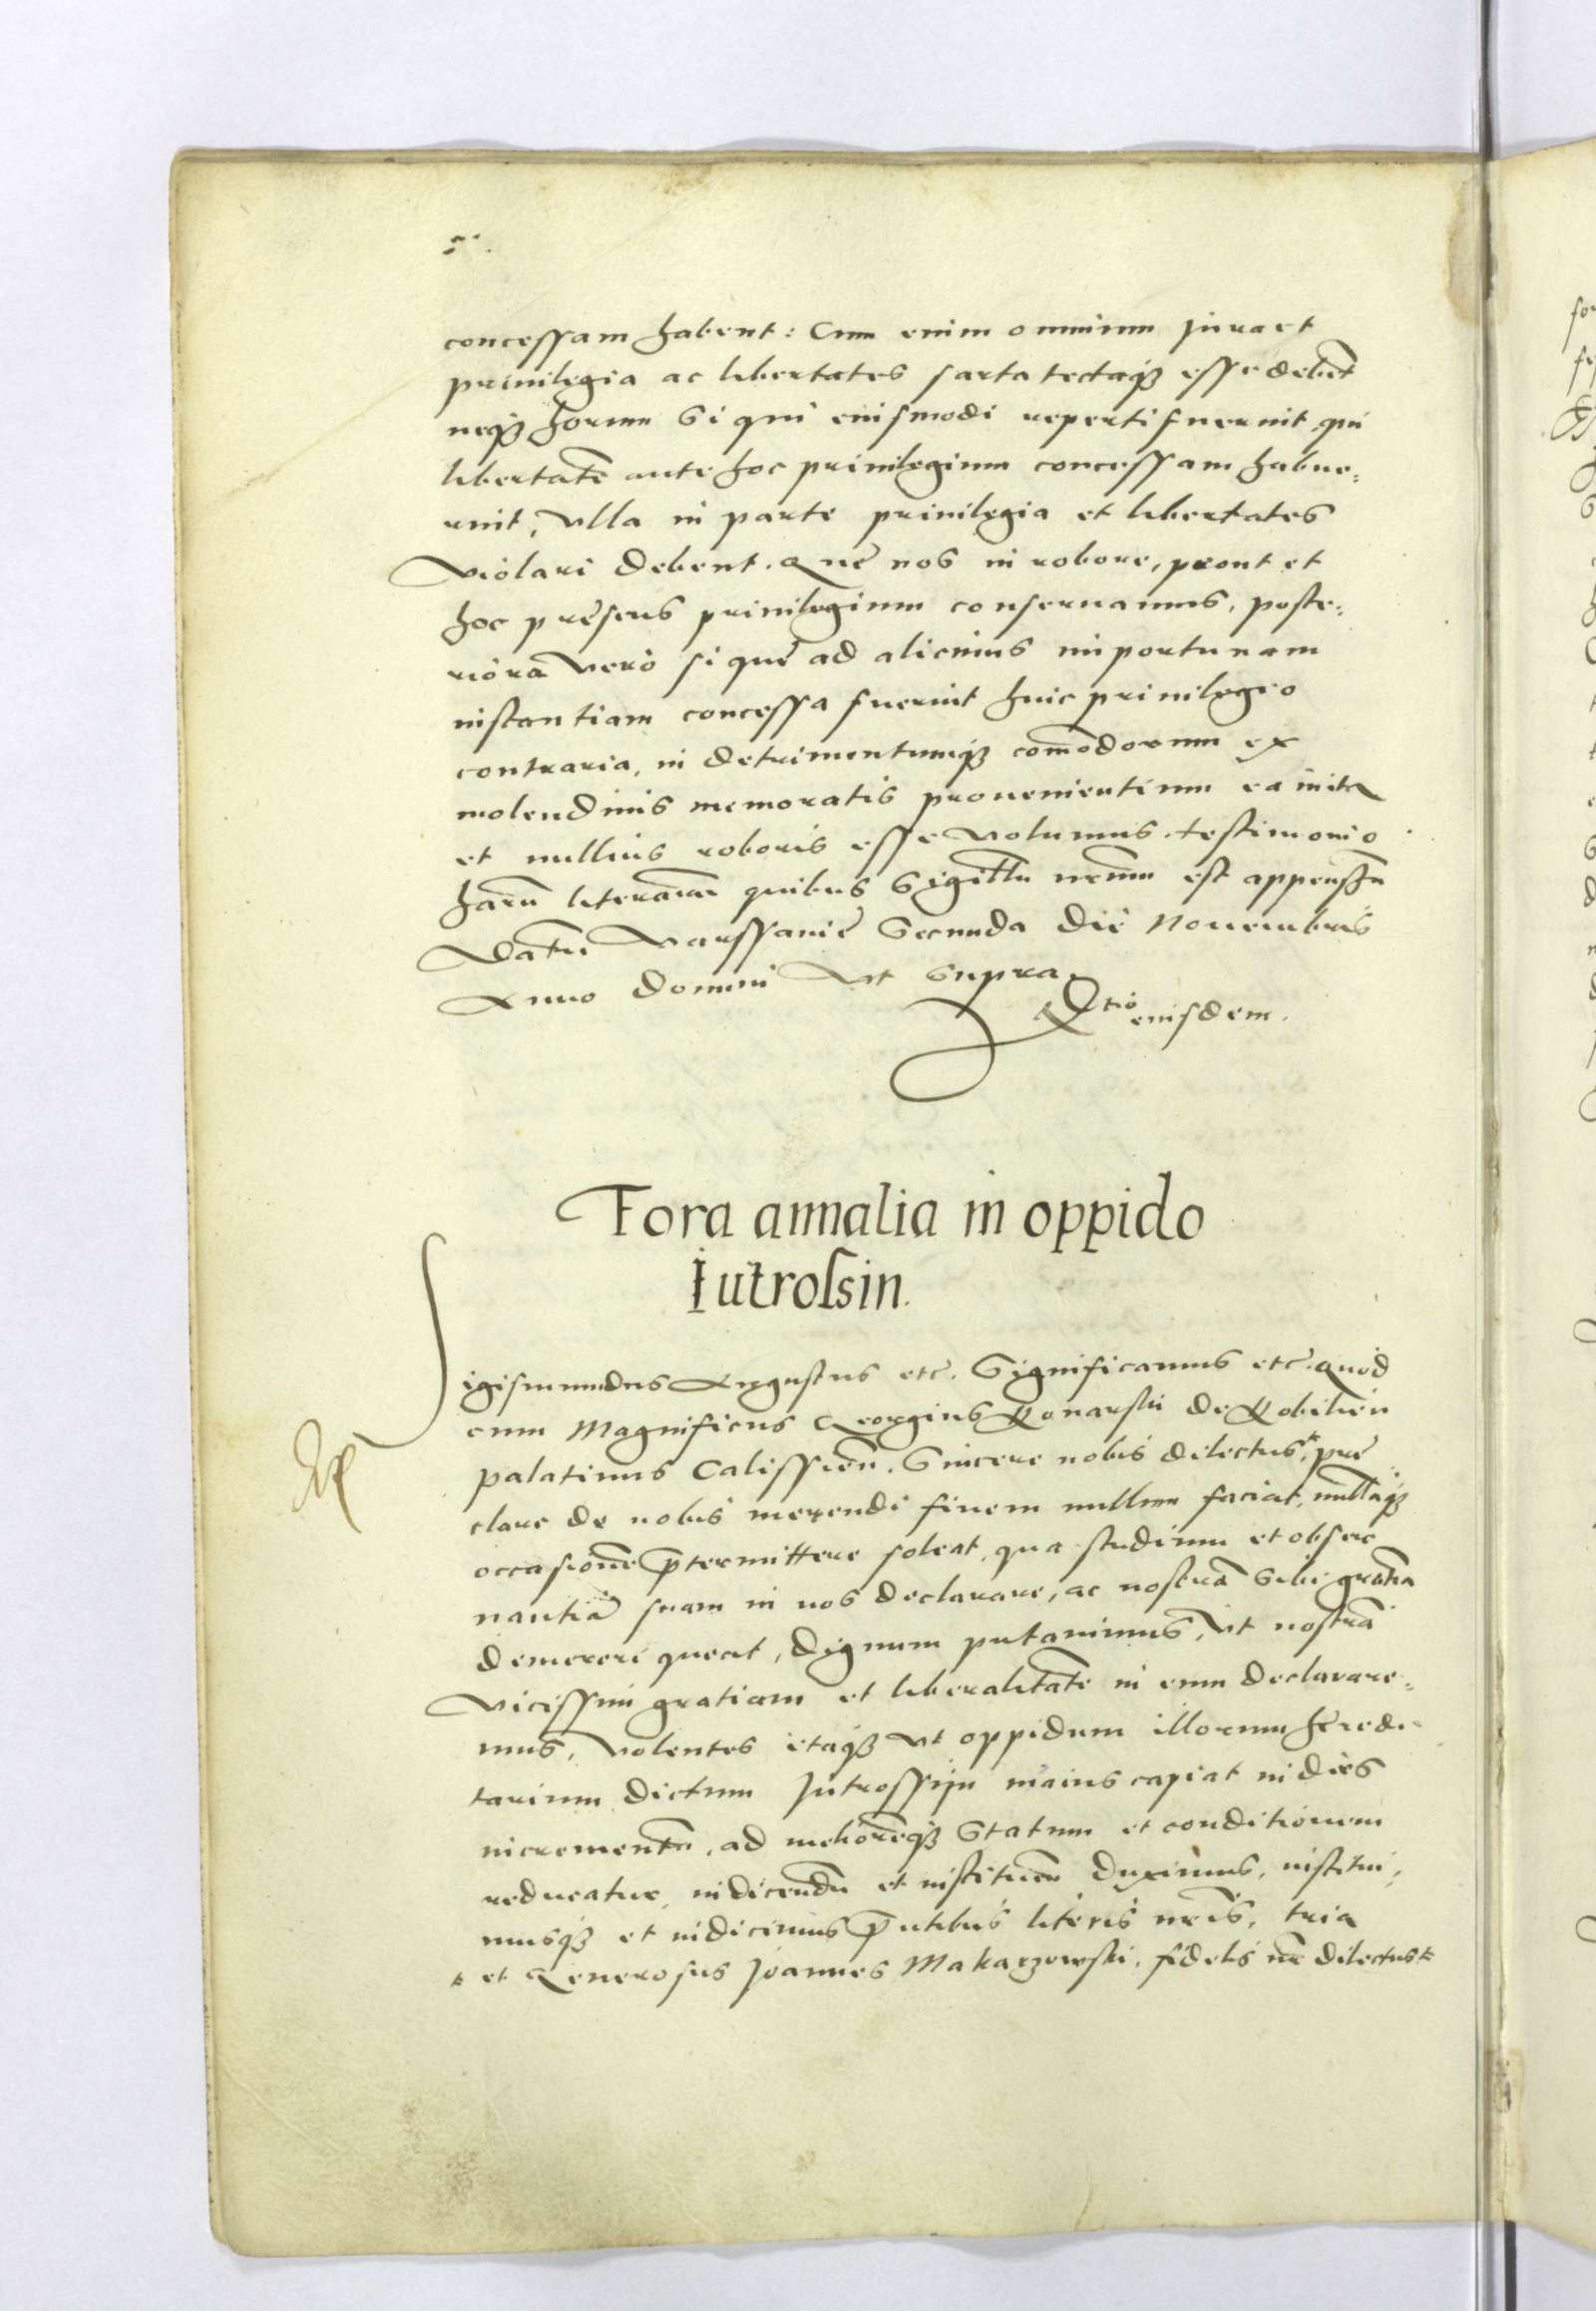 concessam habent: Cum enim omnium jura et
privilegia ac libertates sarta tectaq3 esse debēt
neq3 horum Si qui eiusmodi reperti fuerint qui
libertatē ante hoc privilegium concessam habue:
runt, vlla in parte privilegia et libertates
violari debent. Que nos in robore, prout et
hoc presens privilegium conservamus, poste:
riora vero si que ad alicuius importunam
instantiam concessa fuerint huic privilegio
contraria, in detrimentumq3 comōdorum ex
molendinis memoratis provenientium ea irrita
et nullius roboris esse volumus. testimonio
harū literarum quibus Sigillū nrum est appensū
Datū Varssavie Secunda die Novembris
Anno Domini Vt Supra.
Rtio eiusdem.
Fora annalia in oppido
Iutrossin.
Sigismundus Augustus etc. Significamus etc. Quod
cum Magnificus Georgius Konarski de Kobilien
palatinus Calissien. Sincere nobis dilectus, pre
clare de nobis merendi finem nullum faciat, nullāq3
occasionē p̄termittere soleat, qua studium et obser
vantiā suam in nos declarare, ac nostrā Sibi gratiā
demereri queat, dignum putavimus, vt nostrā
vicissim gratiam et liberalitatē in eum declarare:
mus, volentes itaq3 vt oppidum illorum heredi
tarium dictum Jutrossijn maius capiat indies
incrementū, ad meliorēq3 Statum et conditionem
reducatur, indicendū et instituen duximus, institui,
musq3 et indicimus p̄ntibus literis nris, tria
et Generosus Joannes Makarzowski, fidelis nr dilectus